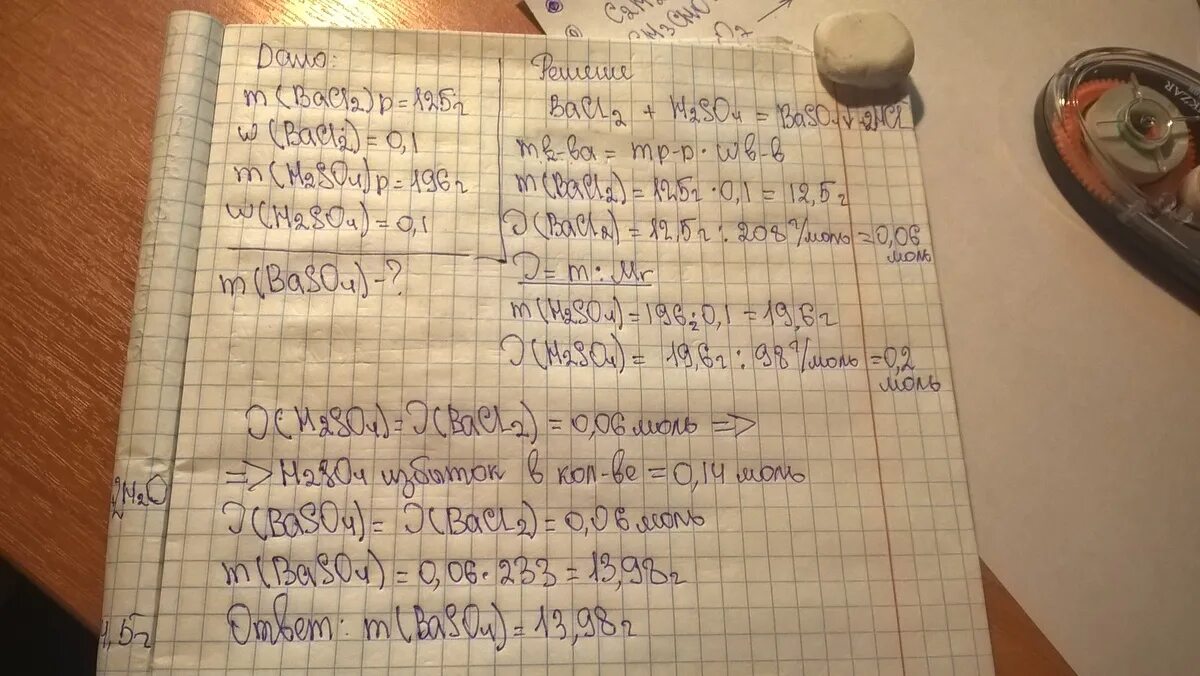 Дано:
m(BaCl2)р=125г
w(BaCl2)=0,1
m(H2SO4)р=196г
w(H2SO4)=0,1
m(BaSO4)-?
Решение
BaCl2 + H2SO4 = BaSO4↓ 2HCl
mв-ва = mр-р · wв-в
m(BaCl2)=125г·0,1=12,5г
ϑ(BaCl2)=12,5г:208г/моль=0,06
моль
ϑ=m:Mr
m(H2SO4)=196·0,1=19,6г
ϑ(H2SO4)= 19,6г:98г/моль=0,2
моль
ϑ(H2SO4)=ϑ(BaCl2)=0,06моль =>
=> H2SO4 избыток в кол-ве=0,14моль
ϑ(BaSO4)=ϑ(BaCl2)=0,06моль
m(BaSO4)=0,06·233=13,98г
Ответ: m(BaSO4)=13,98г
2H2O